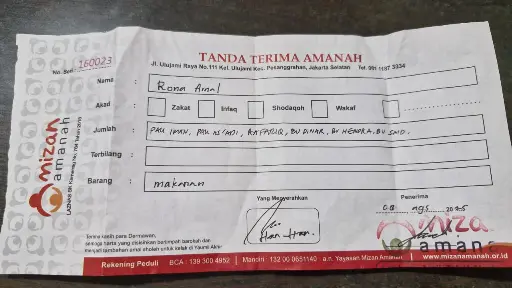 TANDA TERIMA AMANAH
Jl. Ulujami Raya No.111 Kel. Ulujami Kec. Pesanggrahan, Jakarta Selatan Telp. 081 1197 3334
No. Seri 160023
Nama : Rona Amal
Akad : Zakat Infaq Shodaqoh Wakaf
Jumlah : PAK IMAN, PAK BU DINAR, BU HENDRA, BU SAID.
Terbilang :
Barang : makanan
mizan
amanah
LAZNAS SK Kemenag No. 704 Tahun 2019
Yang Menyerahkan
Penerima
ags 2025
Han Han
Terima kasih para Dermawan,
semoga harta yang disisihkan berlimpah barokah dan
menjadi tambahan amal sholeh untuk kelak di Yaumil Akhir
miza
amana
Rekening Peduli BCA : 139 300 4952 | Mandiri : 132 00 0651140 - a.n. Yayasan Mizan Amanah www.mizanamanah.or.id